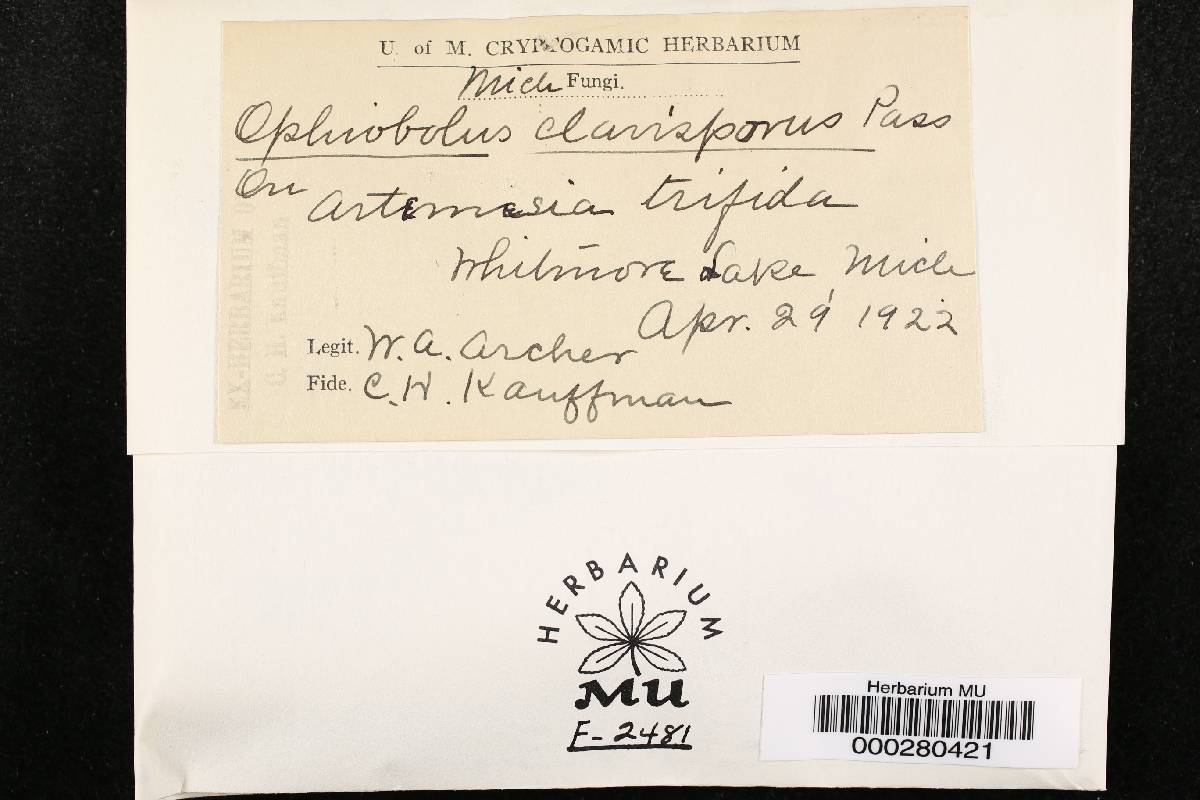 U. of M. CRYPTOGAMIC HERBARIUM
Mich Fungi.
Ophiobolus clavisporus Pass
On Artemesia trifida
Whitmore Lake, Mich
Apr. 29, 1922
Legit. W. A. Archer
Fide. C. H. Kauffman
EX-HERBARIUM OF
C. H. Kauffman
HERBARIUM
MU
F-2481
Herbarium MU
000280421